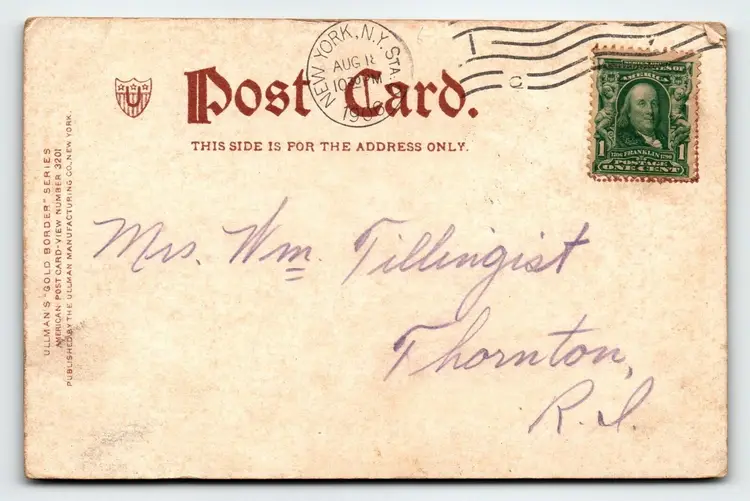 NEW YORK, N.Y. STA.
AUG 18
1030 PM
1906
C
U
Post Card.
THIS SIDE IS FOR THE ADDRESS ONLY.
SERIES 1902
UNITED STATES OF
AMERICA
1 1
1706 FRANKLIN 1790
POSTAGE
ONE CENT
ULLMAN'S "GOLD BORDER" SERIES
AMERICAN POST CARD-VIEW NUMBER 3201
PUBLISHED BY THE ULLMAN MANUFACTURING CO., NEW YORK.
Mrs. Wm Tillingist
Thornton,
R.I.